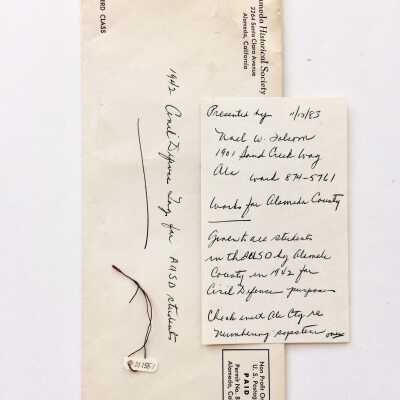 THIRD CLASS
Alameda Historical Society
2264 Santa Clara Avenue
Alameda, California
1942 Civil Defense Tag for AUSD students
Presented by 11/10/83
W. Folsom
1901 Sand Creek Way
Ala work 874-5761
Works for Alameda County
Given to all students
in the AUSD by Alameda
County in 1942 for
Civil Defense purposes
Check with Ala Cty re
Numbering system
Non Profit Or
U. S. Postag
PAID
Permit No. 8
Alameda, Ca